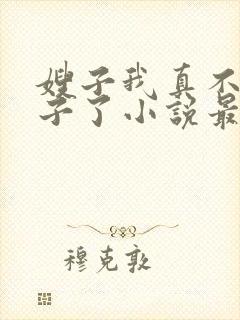 嫂子我真不
子了小说最
穆克敦